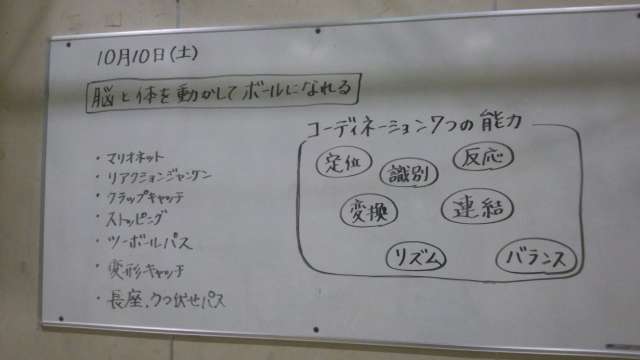 10月10日(土)
脳と体を動かしてボールになれる
・マリオネット
・リアクションジャンケン
・クラップキャッチ
・ストッピング
・ツーボールパス
・変形キャッチ
・長座、うつ伏せパス
コーディネーション7つの能力
定位 識別 反応
変換 連結
リズム バランス